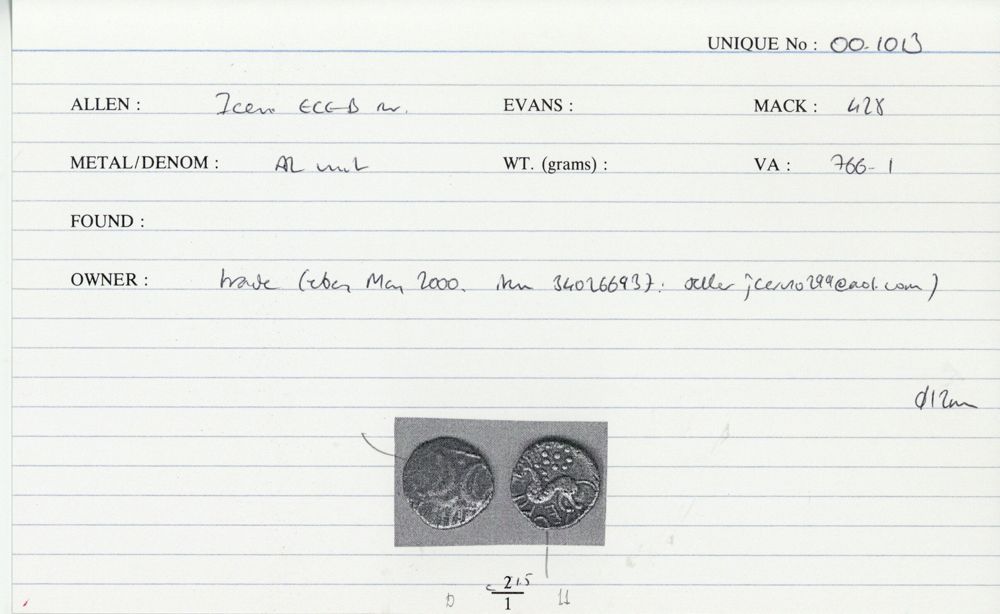 UNIQUE No : 00.1013
ALLEN : Iceni ECE-B var. EVANS : MACK : 428
METAL/DENOM : AR unit WT. (grams) : VA : 766-1
FOUND :
OWNER : trade (eBay May 2000. item 340266937: seller
Ø12mm
DECE
2 1.5
1